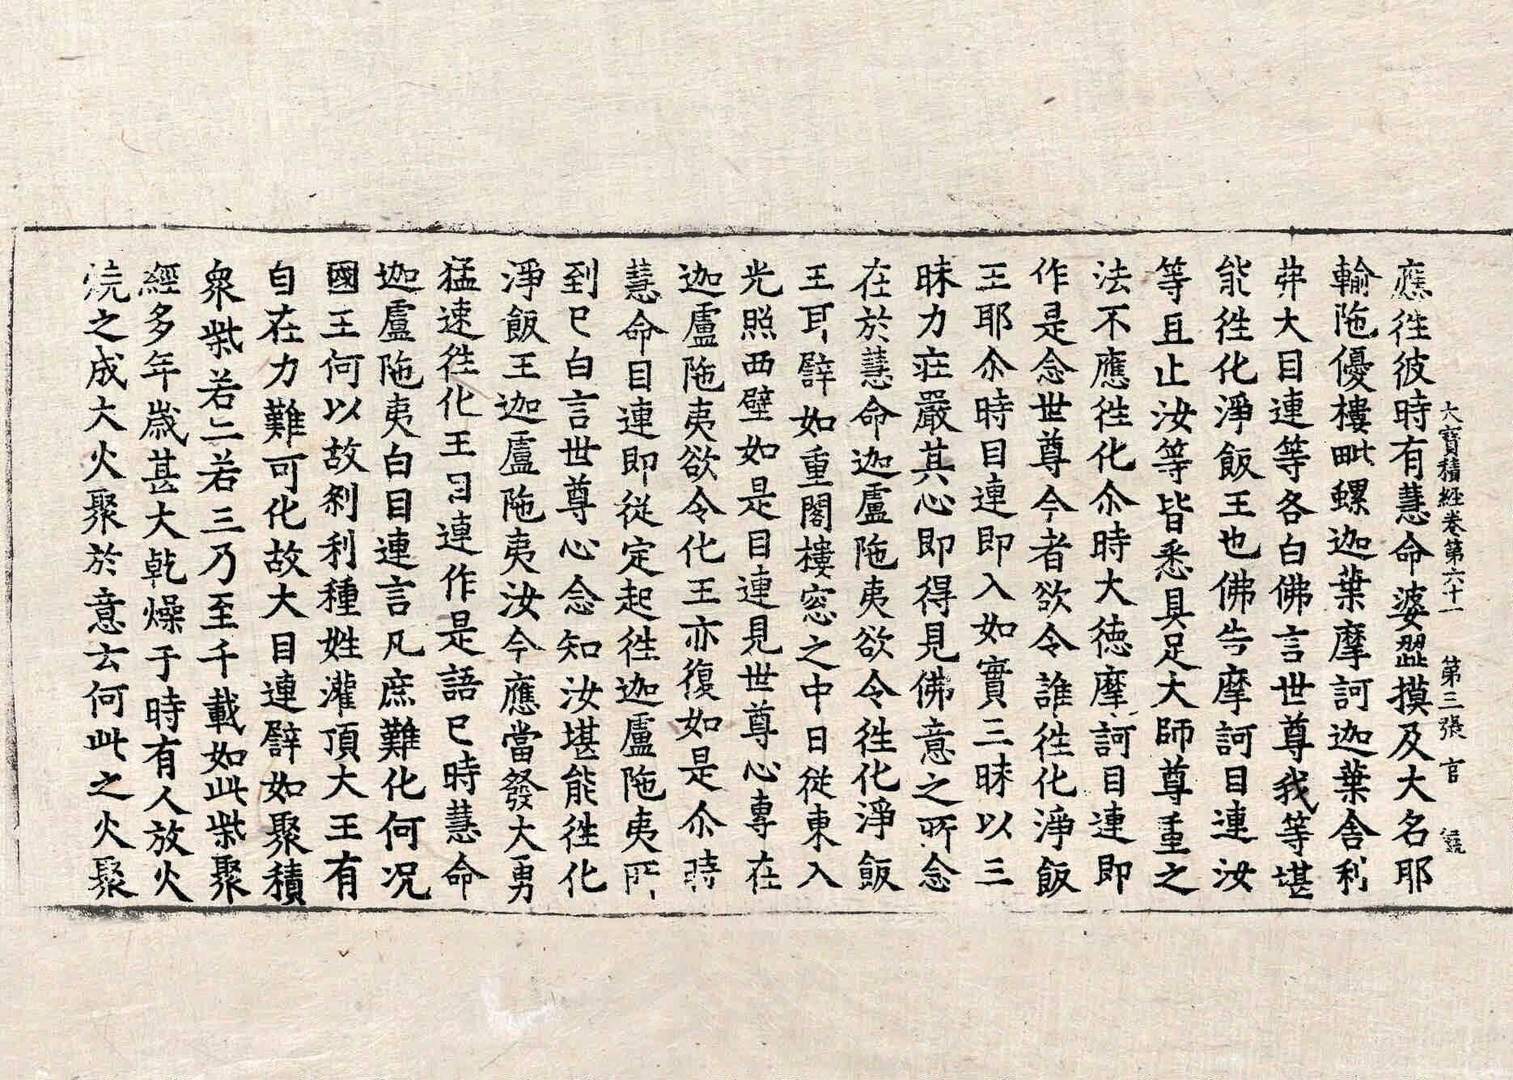 大寶積經卷第六十一 第三張 官
應徃彼時有慧命婆澀摸及大名耶
輸陁優樓毗螺迦葉摩訶迦葉舍利
弗大目連等各白佛言世尊我等堪
能徃化淨飯王也佛告摩訶目連汝
等且止汝等皆悉具足大師尊重之
法不應徃化尒時大德摩訶目連即
作是念世尊今者欲令誰徃化淨飯
王耶尒時目連即入如實三昧以三
昧力莊嚴其心即得見佛意之所念
在於慧命迦盧陁夷欲令徃化淨飯
王耳譬如重閣樓窓之中日從東入
光照西壁如是目連見世尊心專在
迦盧陁夷欲令化王亦復如是尒時
慧命目連即從定起徃迦盧陁夷所
到已白言世尊心念知汝堪能徃化
淨飯王迦盧陁夷汝今應當發大勇
猛速徃化王目連作是語已時慧命
迦盧陁夷白目連言凡庶難化何况
國王何以故刹利種姓灌頂大王有
自在力難可化故大目連譬如聚積
衆柴若二若三乃至千載如此柴聚
經多年歲甚大乾燥于時有人放火
燒之成大火聚於意云何此之火聚